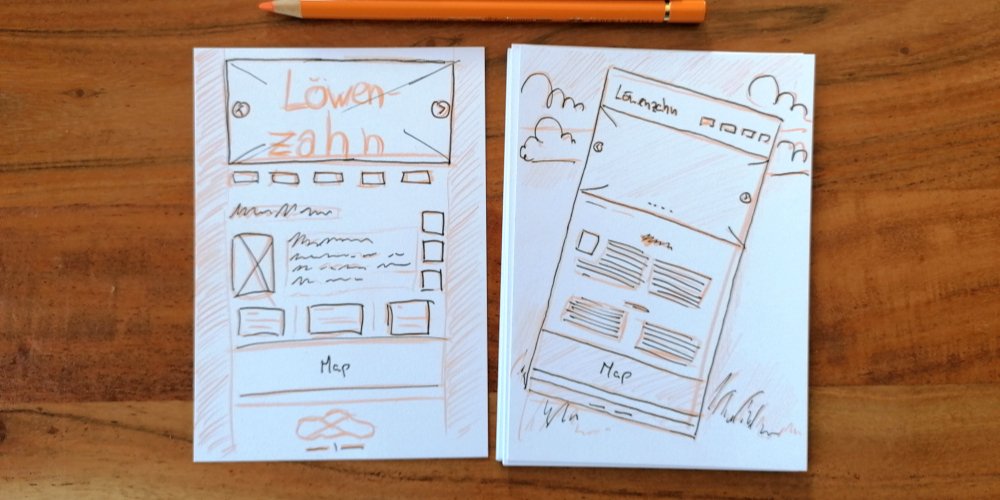 Löwen-
zahn
Map
Löwenzahn
Map